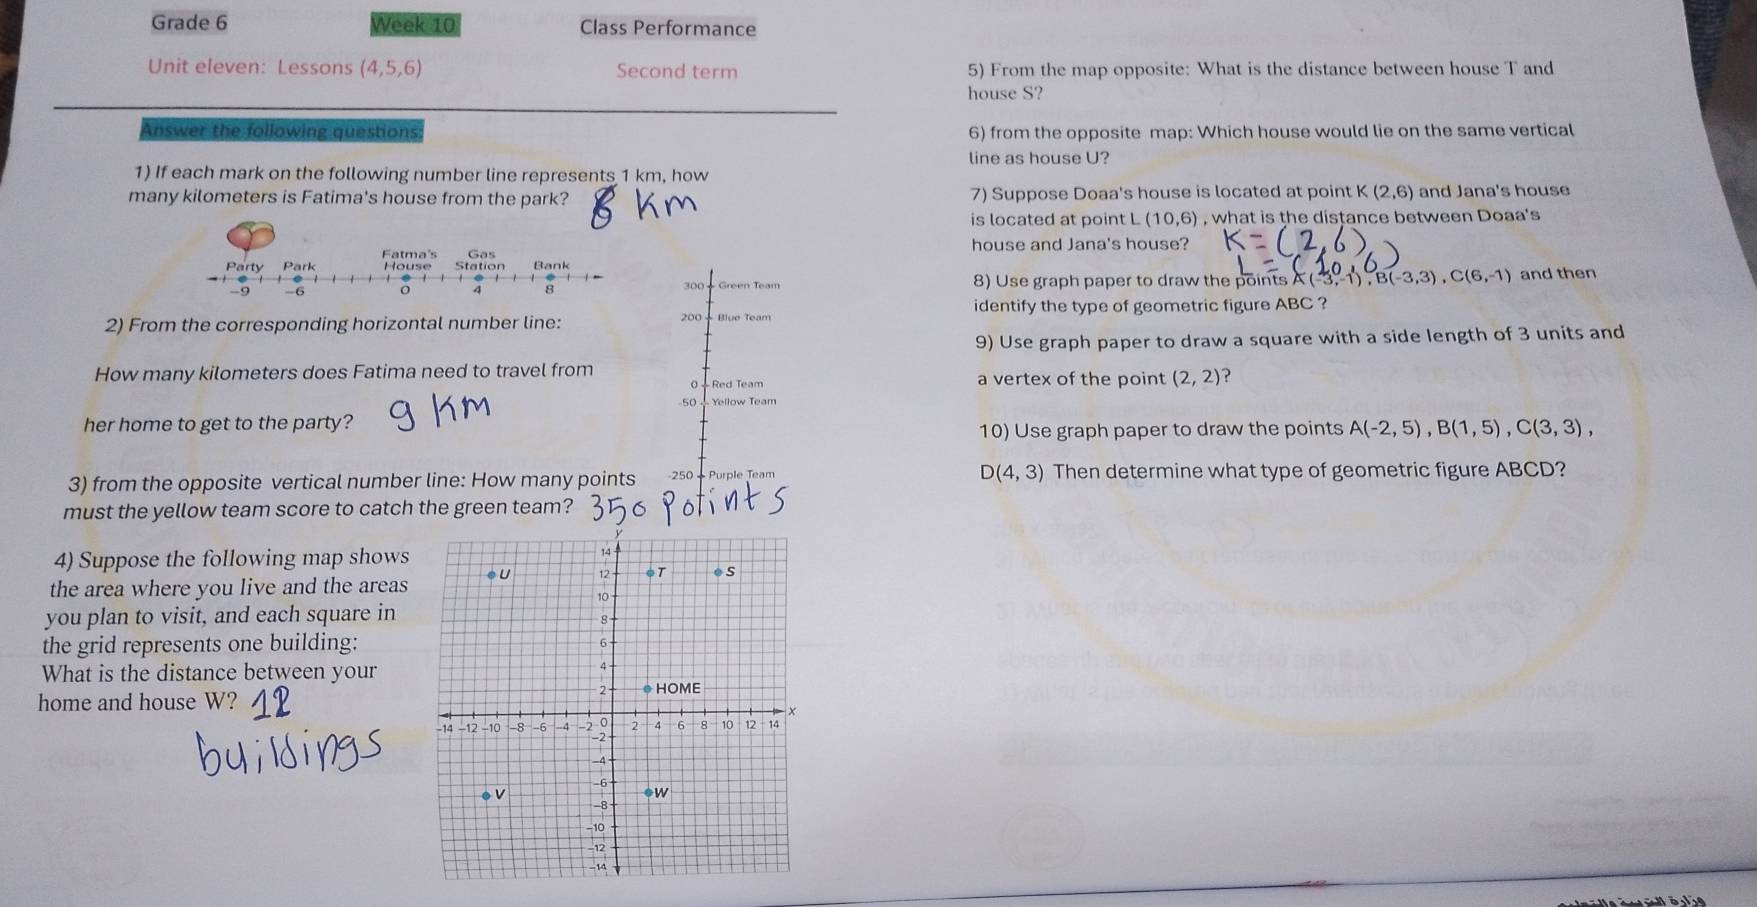 Grade 6 Week 10 Class Performance
Unit eleven: Lessons (4,5,6) Second term
Answer the following questions:
1) If each mark on the following number line represents 1 km, how
many kilometers is Fatima's house from the park? 6 Km
Party Park Fatma's House Gas Station Bank
-9 -6 0 4 8
2) From the corresponding horizontal number line:
How many kilometers does Fatima need to travel from
her home to get to the party? 9 Km
300 Green Team
200 Blue Team
0 Red Team
-50 Yellow Team
-250 Purple Team
3) from the opposite vertical number line: How many points
must the yellow team score to catch the green team? 350 Points
4) Suppose the following map shows
the area where you live and the areas
you plan to visit, and each square in
the grid represents one building:
What is the distance between your
home and house W? 12
buildings
y
14
U 12 T S
10
8
6
4
2 HOME
x
-14 -12 -10 -8 -6 -4 -2 0 2 4 6 8 10 12 14
-2
-4
-6
V W
-8
-10
-12
-14
5) From the map opposite: What is the distance between house T and
house S?
6) from the opposite map: Which house would lie on the same vertical
line as house U?
7) Suppose Doaa's house is located at point K (2,6) and Jana's house
is located at point L (10,6) , what is the distance between Doaa's
house and Jana's house? K = (2,6)
L = (10,6)
8) Use graph paper to draw the points A (-3,-1) , B(-3,3) , C(6,-1) and then
identify the type of geometric figure ABC ?
9) Use graph paper to draw a square with a side length of 3 units and
a vertex of the point (2, 2)?
10) Use graph paper to draw the points A(-2, 5) , B(1, 5) , C(3, 3) ,
D(4, 3) Then determine what type of geometric figure ABCD?
وزارة التربية والتعليم